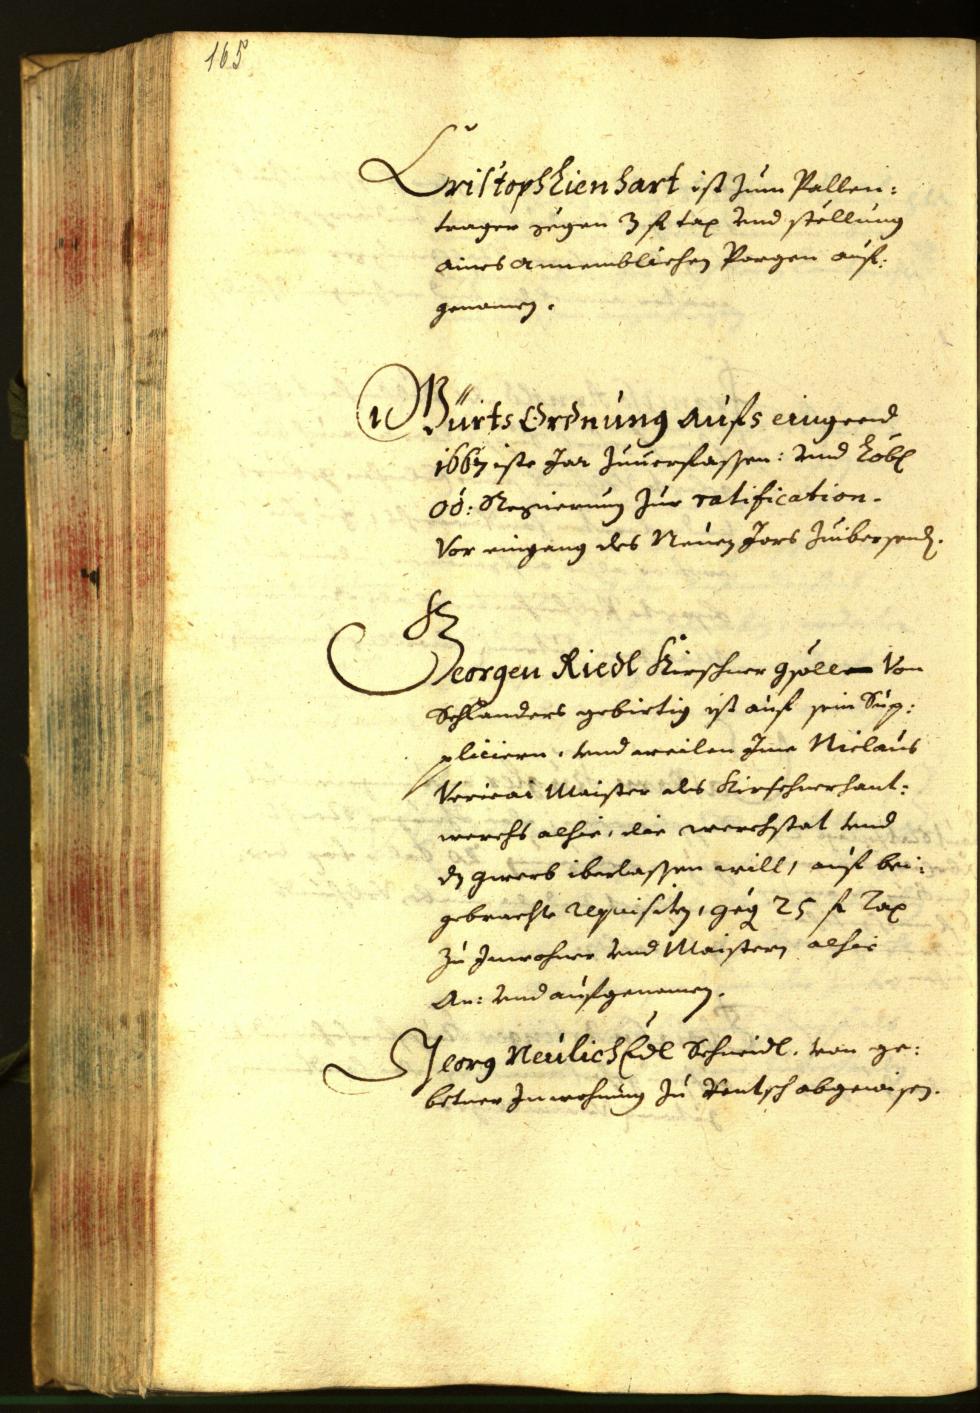 165
Cristoph Lienhart ist zum Pallen:
trager gegen 3 fl tax vnd stellung
aines annemblichen Porgen auf:
genomen.
Würts Ordnung aufs eingeend
1667iste Jar zuuerfassen: vnd Löbl
OÖ: Regierung zur ratification.
Vor eingang des Neuen Jars zuibersend.
Georgen Riedl Kirschner gsöllen Von
Schlanders gebirtig ist auf sein Sup:
pliciern, vnd weilen Jme Niclaus
Maister des Kirschnerhant:
werchs alhie, die werchstat vnd
dz gwerb iberlassen will, auf bei:
gebrachte requisiten, geg 25 fl Tax
Zu Jnwohner vnd Maistern alhie
An: vnd aufgenomen.
Georg Neulich Edl Schneidl. von ge:
betner Jnwohnung zu Rentsch abgewisen.